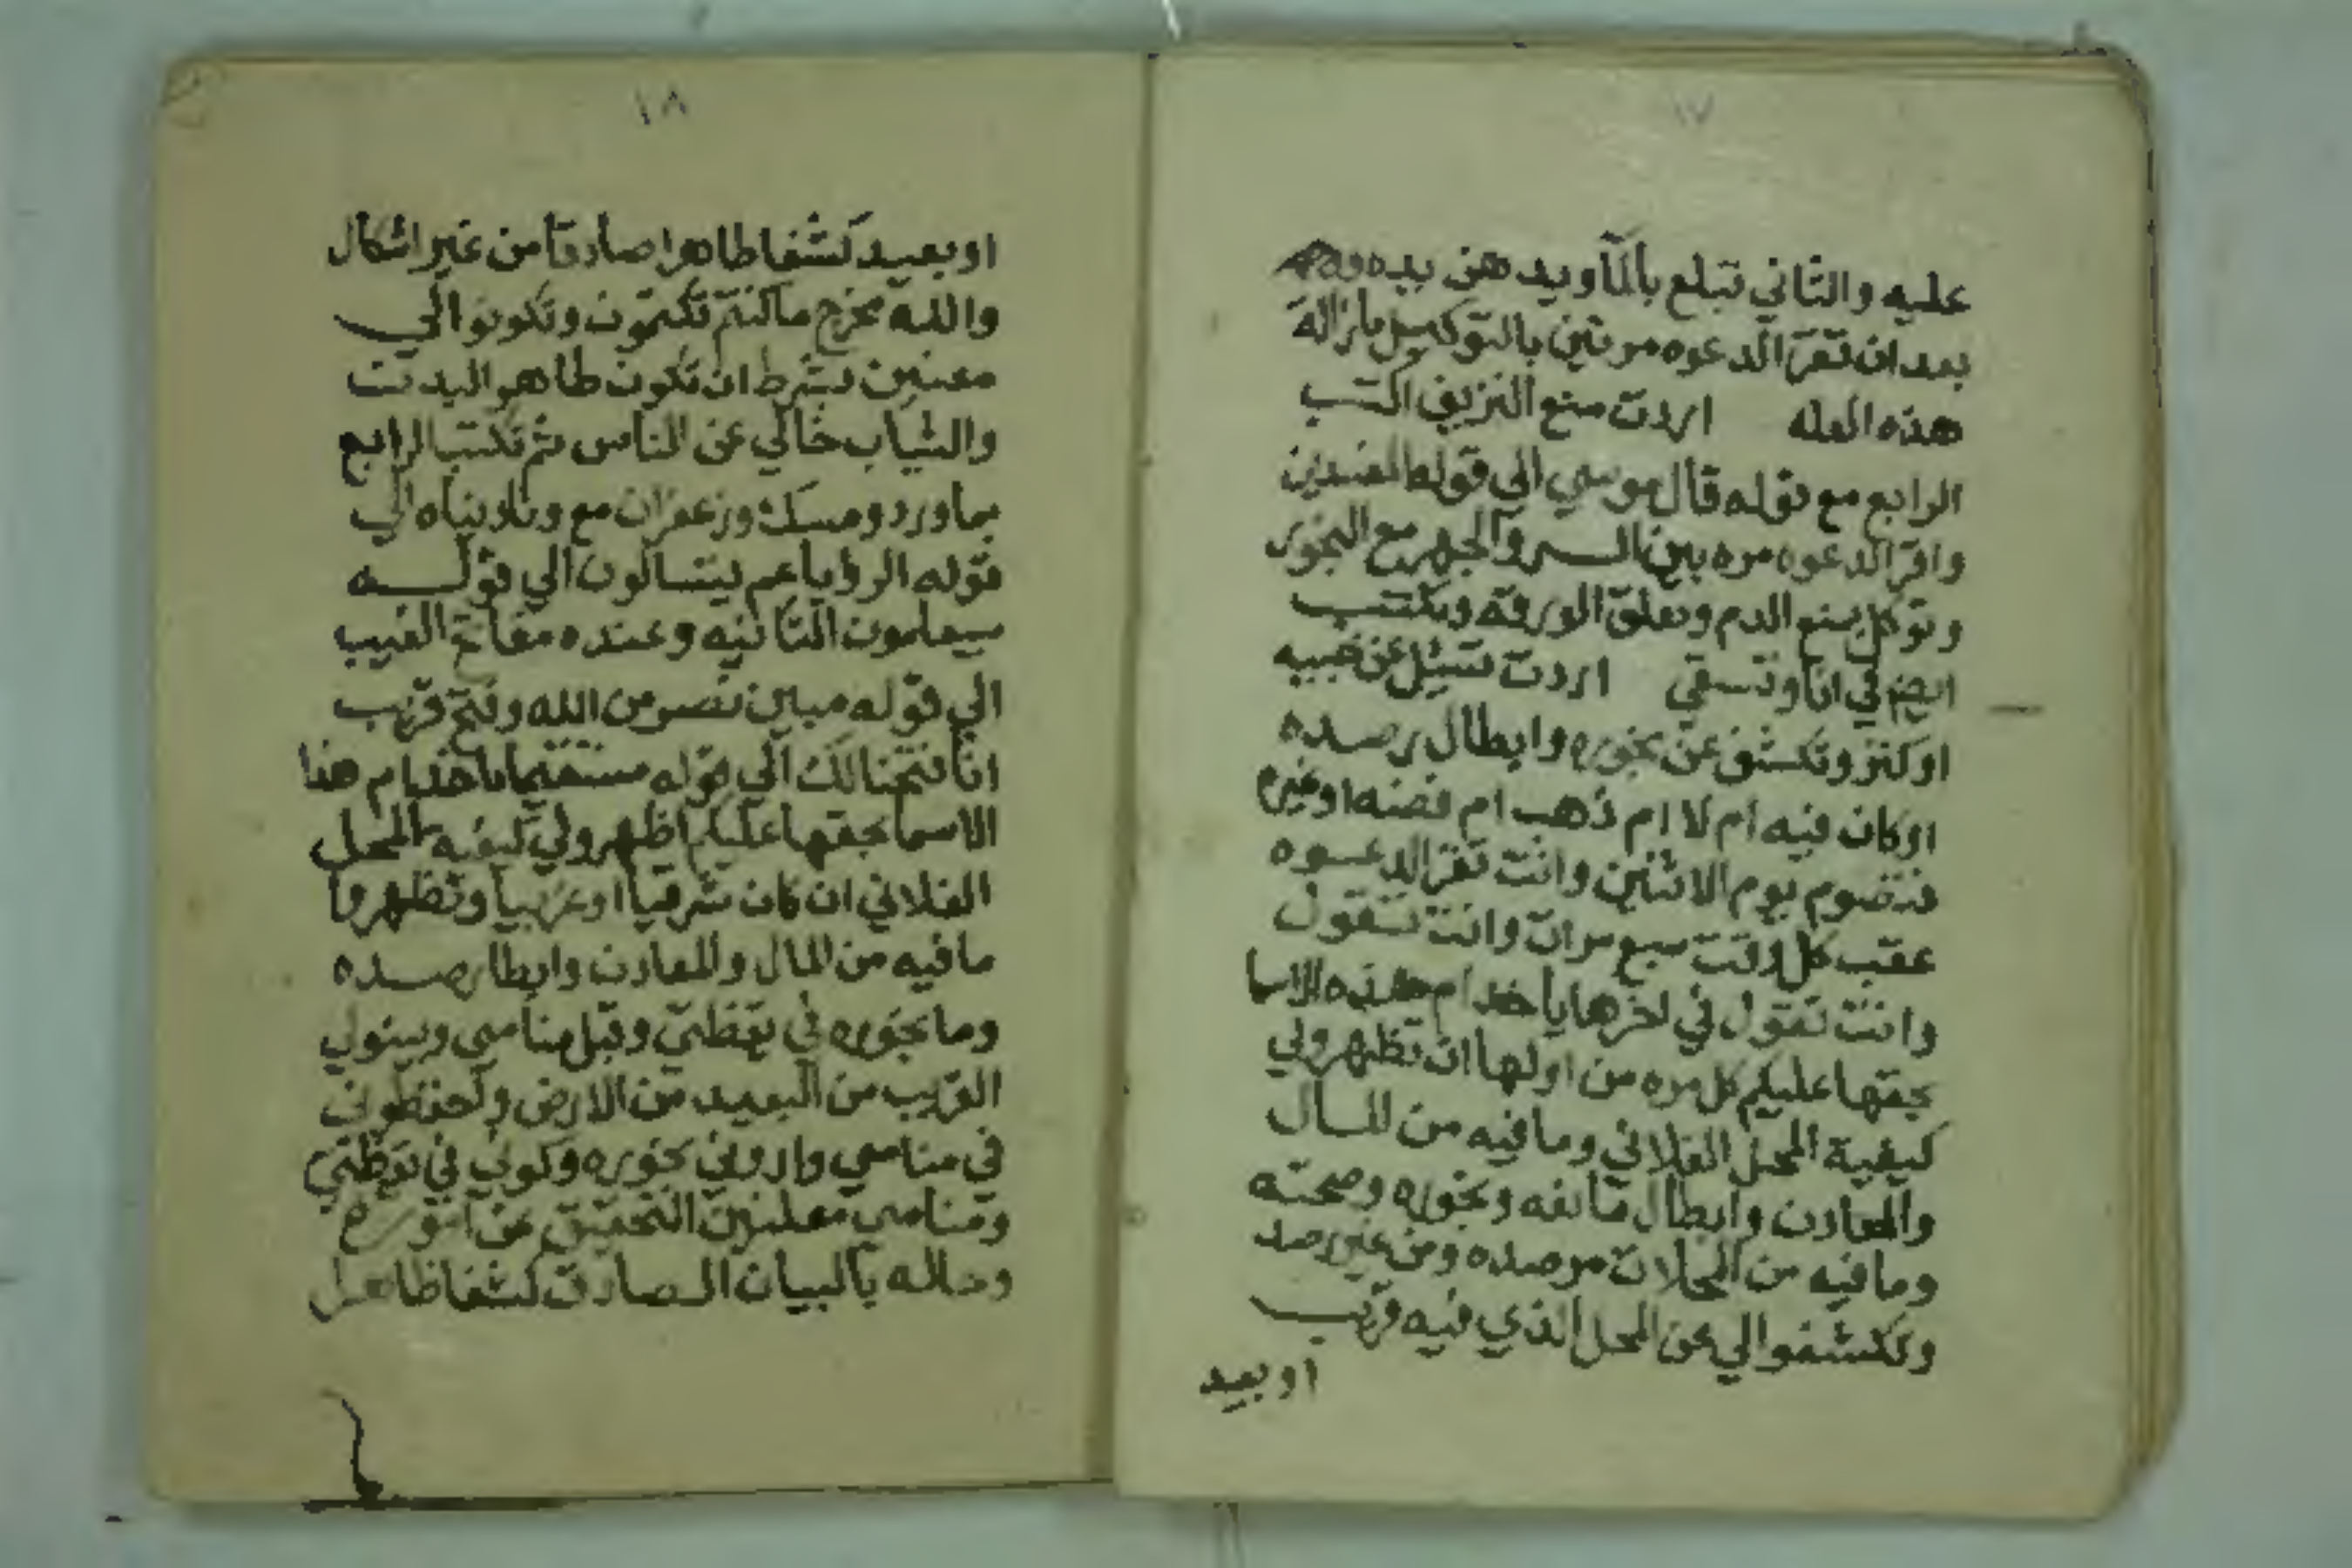 ١٧
عليه والثاني تبلع بالما ويدهن بيده
بعد ان تقرا الدعوه مرتين بالتوكيل بازالة
هذه العله اردت منع النزيف اكتب
الرابع مع قوله قال موسي الي قوله المفسدين
واقرا الدعوه مره بين السر والجهر مع البخور
وتوكل بمنع الدم وتعلق الورقة وتكتب
ايضا في انا وتسقي اردت تسئل عن خبيه
او كنز وتكشف عن بخوره وابطال رصده
او كان فيه ام لا ام ذهب ام فضه او غيره
فتصوم يوم الاثنين وانت تقرا الدعوه
عقب كل وقت سبع مرات وانت تقول
وانت تقول في اخرها يا خدام هذه الاسما
بحقها عليكم كل مره من اولها ان تظهرولي
كيفية المحل الفلاني وما فيه من المال
والمعادن وابطال مانعه وبخوره وصحته
وما فيه من المحلات مرصده ومن غير رصد
وتكشفوا لي عن المحل الذي فيه قريب
او بعيد
١٨
او بعيد كشفا ظاهرا صادقا من غير اشكال
والله مخرج ما كنتم تكتمون وتكونوا لي
معينين بشرط ان تكون طاهر البدن
والثياب خالي عن الناس ثم تكتب الرابع
بماورد ومسك وزعفران مع وناديناه الي
قوله الرؤيا عم يتسالون الي قوله
سيعلمون الثانيه وعنده مفاتح الغيب
الي قوله مبين نصر من الله وفتح قريب
انا فتحنا لك الي قوله مستقيما يا خدام هذا
الاسما بحقها عليكم اظهرولي كيفية المحل
الفلاني ان كان شرقيا او غربيا وتظهروا
ما فيه من المال والمعادن وابطا رصده
وما بخوره في يقظتي وقبل منامي وبينولي
القريب من البعيد من الارض واحفظوني
في منامي واروني بخوره وكونو في يقظتي
ومنامي معلنين التحقيق عن
وحاله بالبيان الصادق كشفا ظاهرا